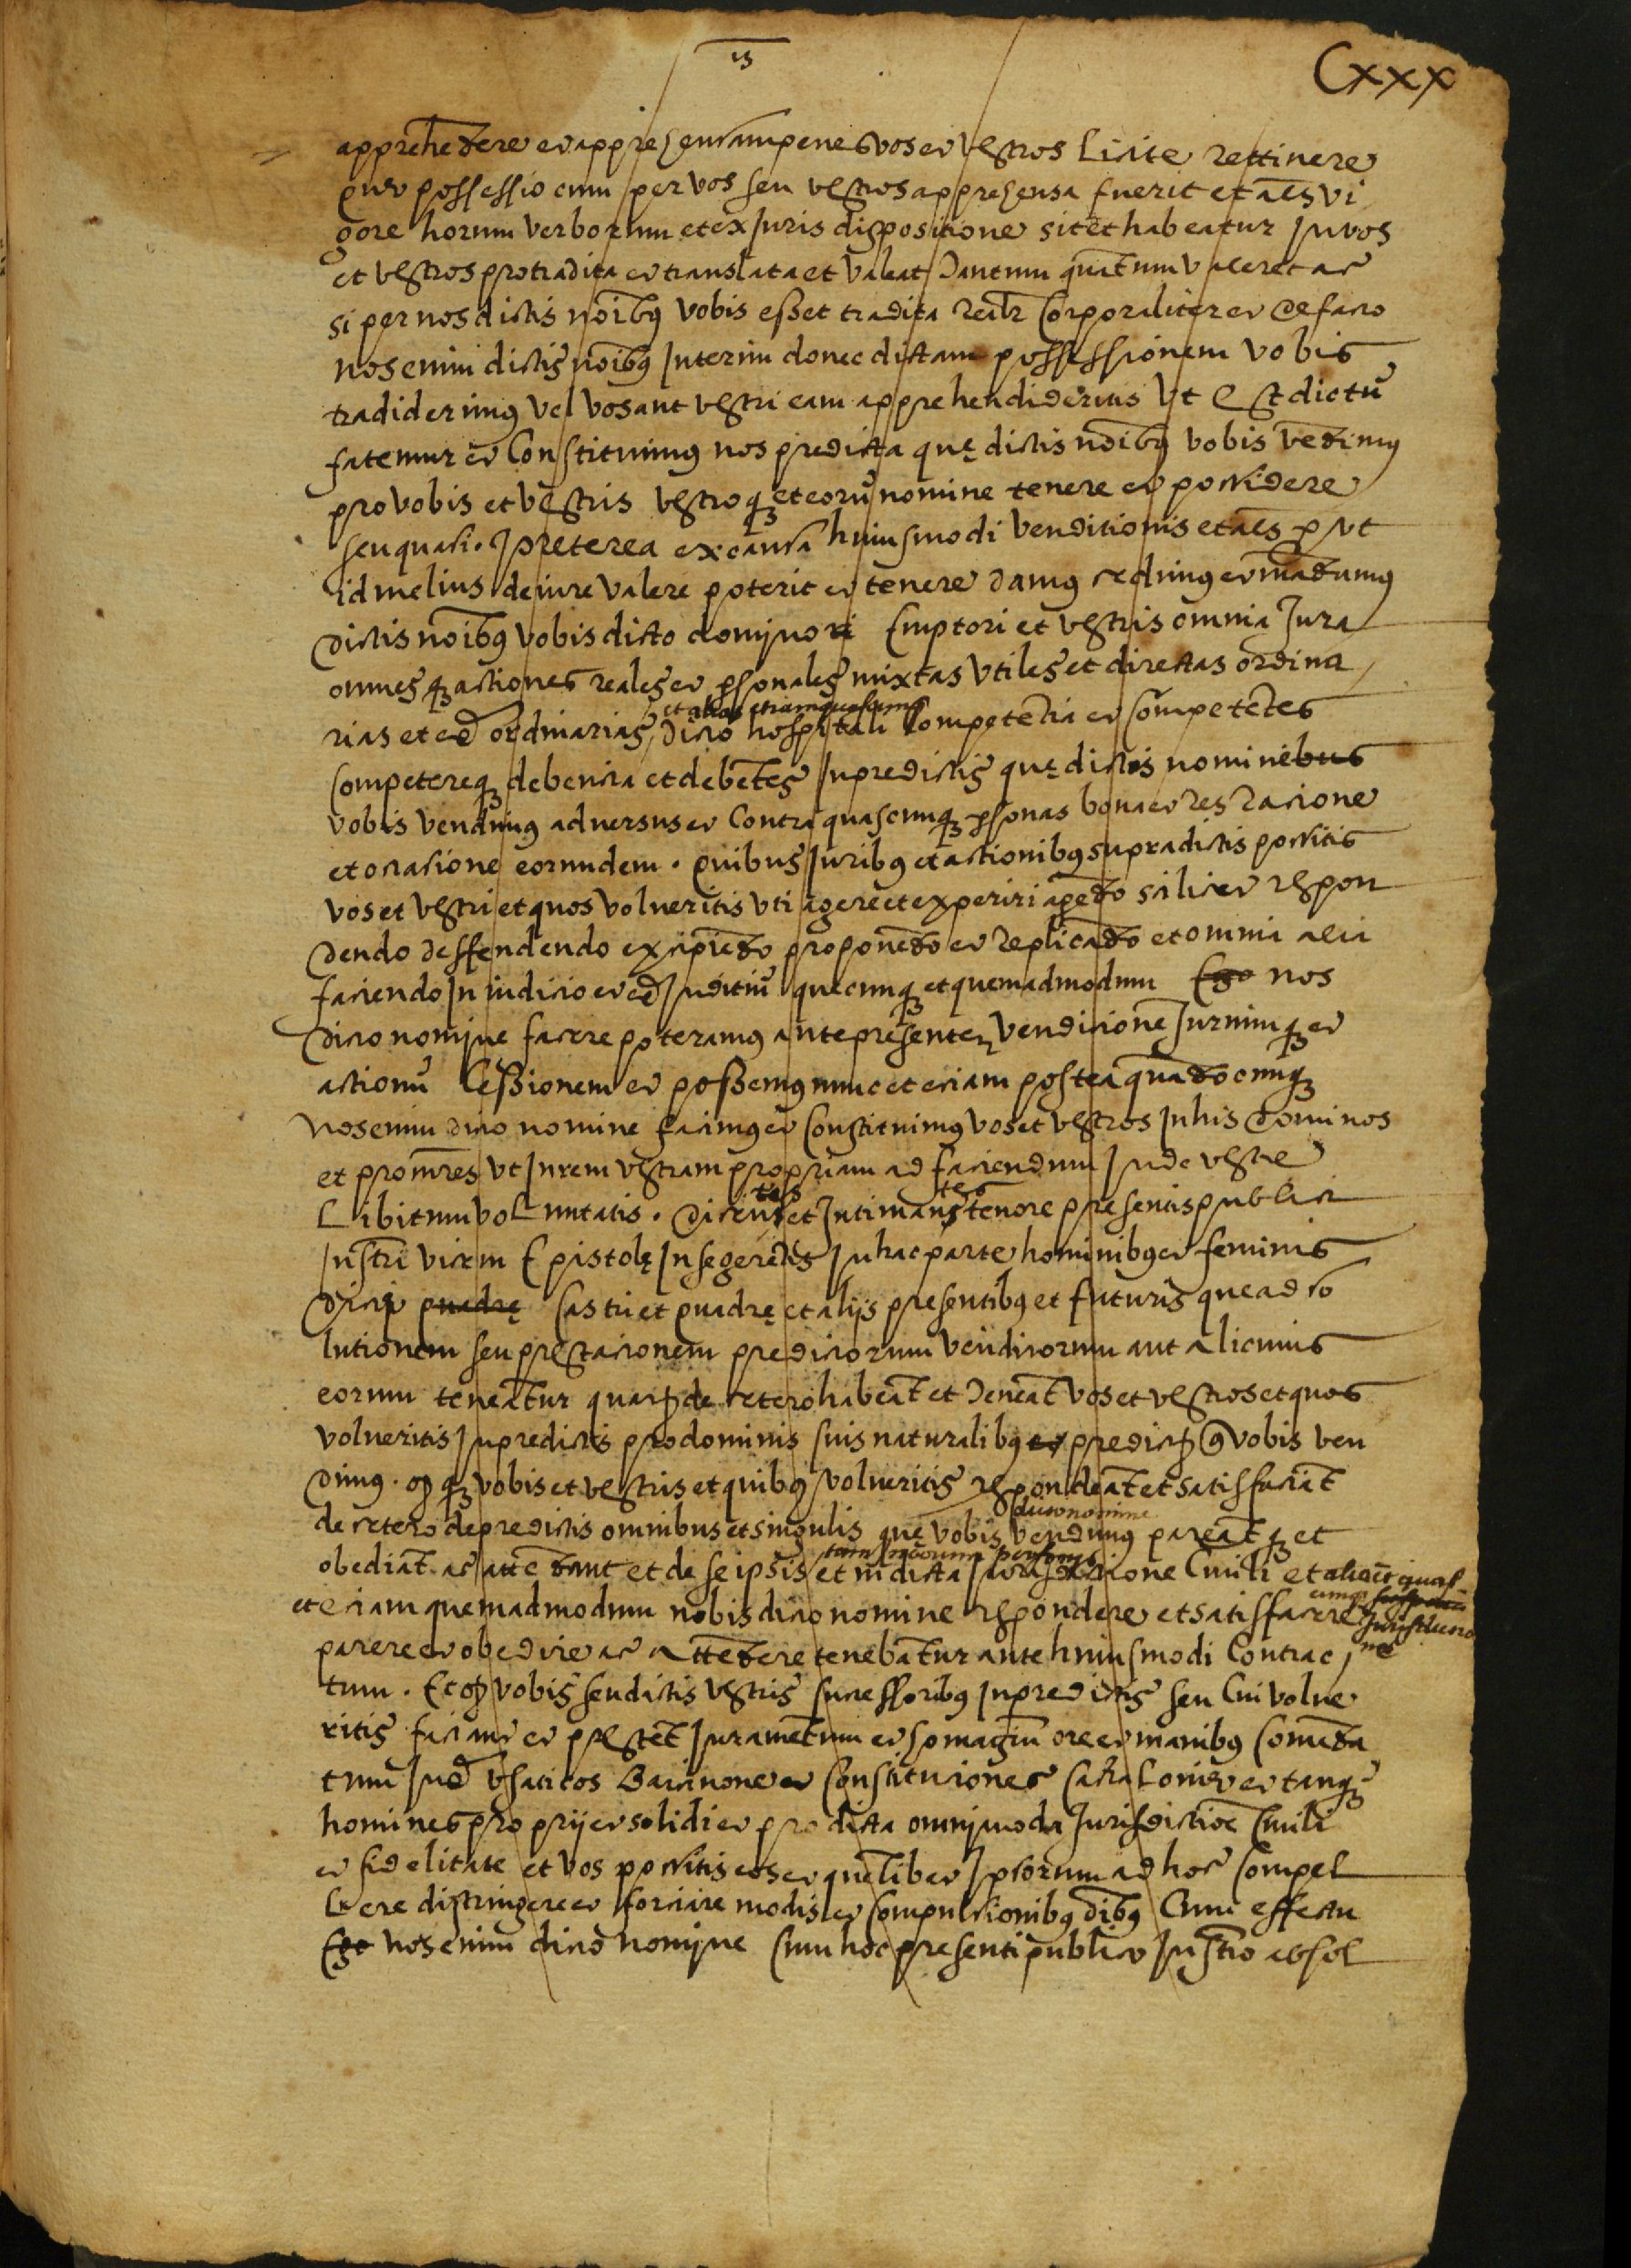 Cxxx
apprehēdere et apprehensam penes vos et vestros Licite rettinere
que possessio cum per vos seu vestros apprehensa fuerit et als vi
gore horum verborum et ex Juris dispositione sit et habeatur In vos
et vestros pro tradita et translata et valeat tantum quātum valeret ac
si per nos dictis noībus vobis esset tradita realr Corporaliter et de facto
nos enim dictis noībus Interim donec dictam possessionem vobis
tradiderimus vel vos aut vestri eam apprehendideritis Vt est dictū
fatemur et Constituimus nos predicta quę dictis noībus vobis vēdimus
pro vobis et vestris vestroq; et eorū nomine tenere et possidere
seu quasi. Preterea ex causa huiusmodi venditionis et als p vt
id melius de iure valere poterit et tenere damus cedimus et mādamus
dictis noībus vobis dicto domino Emptori et vestris omnia Jura
omnesq; actiones reales et psonales mixtas Vtiles et directas ordina
rias et exᵈ ordinarias, et alias etiam quascumq; dicto hospitali Competētia et Competētes
Competereq; debencia et debētes In predictis quę dictis nominebus
vobis vendimus aduersus et Contra quascumq; psonas bona et res racione
et occasione eorumdem. Quibus Juribus et actionibus supradictis possitis
vos et vestri et quos volueritis vti agere et experiri agēdo scilicet respon
dendo deffendendo excipiēdo proponēdo et replicādo et omnia alia
faciendo In iudicio et exᵈ Juditiū quecunq; et quemadmodum Ego nos
dicto nomine facere poteramus ante presentem vendicionē Juriumq; et
actionū Cessionem et possemus nunc et eciam postea quādocunq;
Nos enim dicto nomine facimus et Constituimus vos et vestros In his dominos
et procurēs vt In rem vestram propriam ad faciendum Inde vestre
Libitum voluntatis. Dicentes et Intimantes tenore presentis publici
Instrī vicem Epistolę In se gerētis In hac parte hominibus et feminis
dicti quadrę Castri et quadrę et alijs presentibus et futuris que ad so
lutionem seu prestacionem predictorum venditorum aut alicuius
eorum teneātur quatˢ de cetero habeāt et teneāt vos et vestros et quos
volueritis In predictis pro dominis suis naturalibus et predictˢ q vobis ven
dimus. Qˢq; vobis et vestris et quibus volueritis respondeāt et satisfaciāt
de cetero de predictis omnibus et singulis que vobis dicto nomine vendimus pareātq; et
obediāt ac attēdant et de se ipsis tam in eorum personis et in dicta Jurisdiccione Ciuili et alia et quas
cumq; Jurisdiccio
ne
et eciam quemadmodum nobis dicto nomine respondere et satisfacere
parere et obedire ac attēdere tenebātur ante huiusmodi Contrac
tum. Et qˢ vobis seu dictis vestris successoribus In predictis seu Cui volue
ritis faciant et prestēt Juramētum et homagiū ore et manibus Comēda
tum Juxᵈ vsaticos Barcinone et Constituciones Cathalonie et tanqˢ
homines proprij et solidi et pro dicta omnimoda Jurisdictioē Ciuili
et fidelitate et vos possitis eos et quēlibet Ipsorum ad hoc Compel
Lere distringere et forciare modis et Compulsionibus oībus Cum effectu
Ego nos enim dicto nomine Cum hoc presenti publico Instrō absol